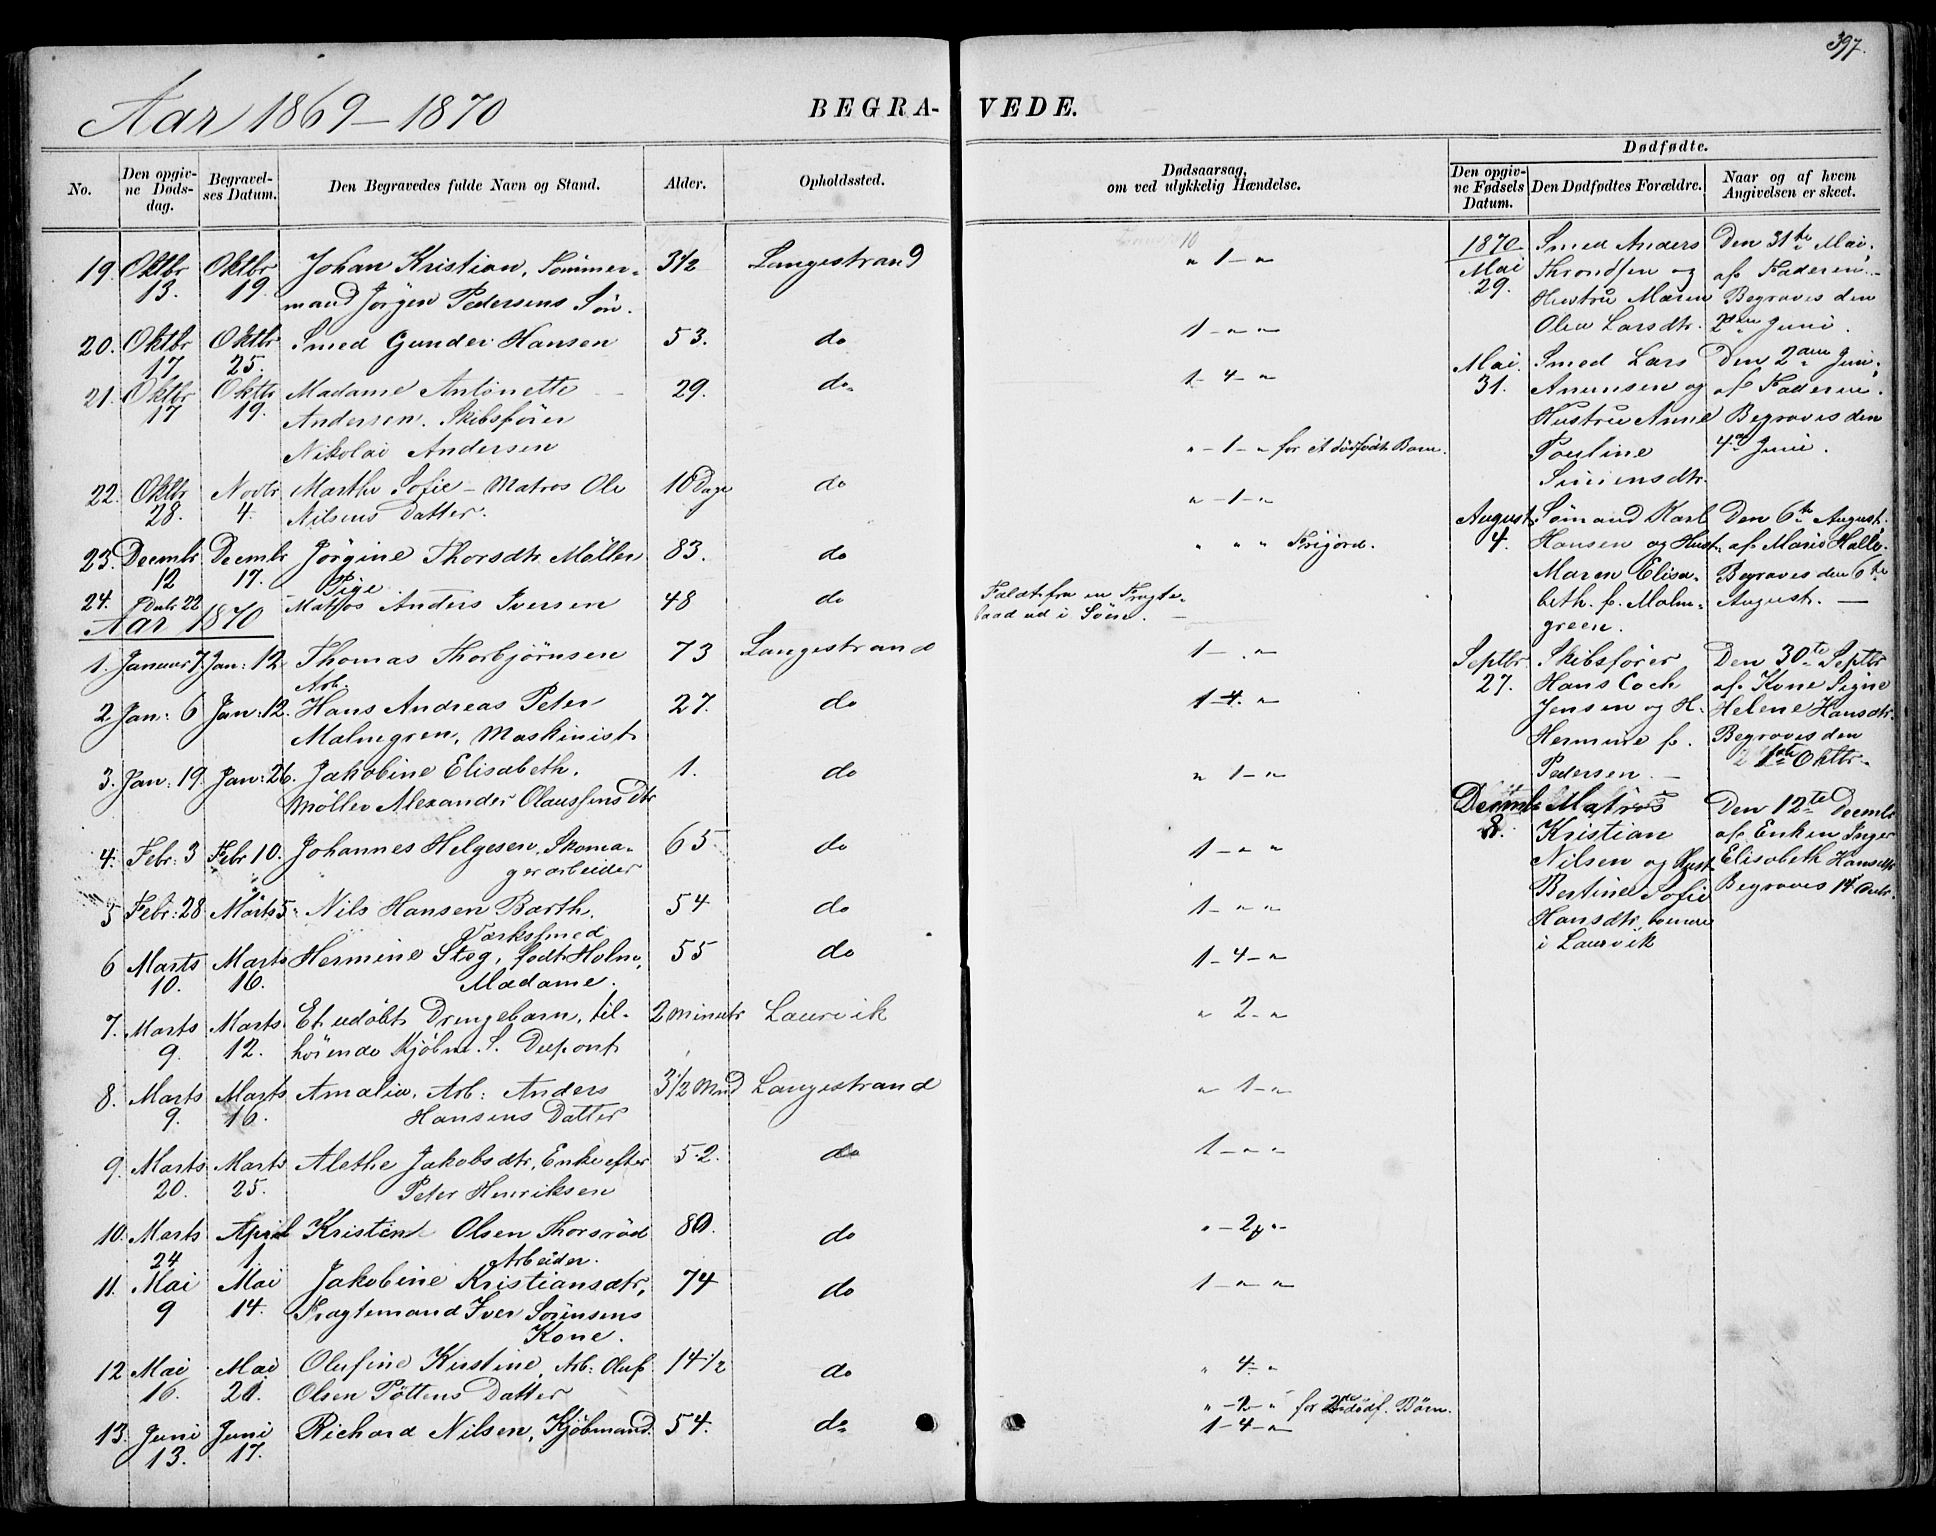 397.
Aar 1869 – 1870
BEGRA- VEDE.
No. Den opgivne Dødsdag. Begravelses Datum. Den Begravedes fulde Navn og Stand. Alder. Opholdssted. Dødsaarsag, om ved ulykkelig Hændelse.
Dødfødte.
Den opgivne Fødsels Datum. Den Dødfødtes Forældre. Naar og af hvem Angivelsen er skeet.
19. Oktbr 13. Oktbr 19. Johan Kristian, Tømmer- 3 1/2 Langestrand " 1 – "
mand Jørgen Pedersens Søn.
20. Oktbr 17 Oktbr 25. Smed Gunder Hansen 53. do 1 – " "
21. Oktbr 17 Oktbr 19. Madame Antonette 29. do 1 – 4 – "
Andersen. Skibsfører
Nikolai Andersen
" – 1 – " for et dødfødt Barn.
22. Oktbr 28. Novbr 4. Marthe Sofie – Matros Ole 10 Dage do " – 1 – "
Nilsens Datter.
23. Decembr 12 Decembr 17. Jørgine Thorsdtr Møller 83. do " " " Frijord.
Pige
24. Dcbr 22 Matros Anders Iversen 48 do Faldt fra en Fragte-
baad ud i Søen. –
Aar 1870
1. Januar 7. Jan: 12 Thomas Thorbjørnsen 73 Langestrand 1 – . "
Arb.
2. Jan: 6 Jan: 12. Hans Andreas Peter 27. do 1 – 4. "
Malmgren, Maskinist
3. Jan: 19. Jan: 26. Jakobine Elisabeth. 1. do " 1 – "
Møller Alexander Olaussens Dtr
4. Febr: 3 Febr 10. Johannes Helgesen, Skoma- 65 do 1 – " "
gerarbeider
5 Febr: 28 Marts 5. Nils Hansen Barth. 54 do 1 – " "
Værksmed
6 Marts 10. Marts 16. Hermine Steg, født Holm, 55 do 1 – 4 – "
Madame.
7. Marts 9. Marts 12. Et udøbt Drengebarn, til- 2 Minuter Laurvik " 2 – "
hørende Kjøbm. S. Dupont
8. Marts 9. Marts 16. Amalia, Arb: Anders 3 1/2 Mnd Langestrand " 1 – "
Hansens Datter
9. Marts 20. Marts 25. Alethe Jakobsdtr, Enke efter 52. do 1 – " "
Peter Henriksen
10. Marts 24 April 1. Kristen Olsen Thorsrød 80. do " – 2 "
Arbeider.
11. Mai 9 Mai 14. Jakobine Kristiansdtr, 74 do 1 – " "
Fragtemand Iver Sørensens
Kone.
12 Mai 16. Mai 21. Olufine Kirstine, Arb: Oluf 14 1/2 do " 4 – "
Olsen Pøttens Datter
" – 2 – " for 2 dødf. Børn.
13. Juni 13. Juni 17. Richard Nilsen, Kjøbmand. 54. do 1 – 4 – "
1870 Mai 29. Smed Anders Den 31te Mai,
Throndsen og af Faderen. –
Hustru Maren Begraves den
Olea Larsdtr. 2den Juni.
Mai 31. Smed Lars Den 2den Juni
Anunsen og af Faderen.
Hustru Anne Begraves den
Pouline 4de Juni.
Simensdtr.
August 4. Sømand Karl Den 6te August
Hansen og Hust. af Marie Halle.
Maren Elisa- Begraves den 6te
beth. f. Malm- August. –
green.
Septbr 27. Skibsfører Den 30te Septbr
Hans Coch af Kone Signe
Jensen og H. Helene Hansdtr.
Hermine f. Begraves den
Pedersen. – 1ste Oktbr.
Decmb 8. Matros Den 12te Decmb
Kristian af Enken Inger
Nilsen og Hust Elisabeth Hansdtr
Bertine Sofie Begraves 14 Decbr.
Hansdtr, boende
i Laurvik